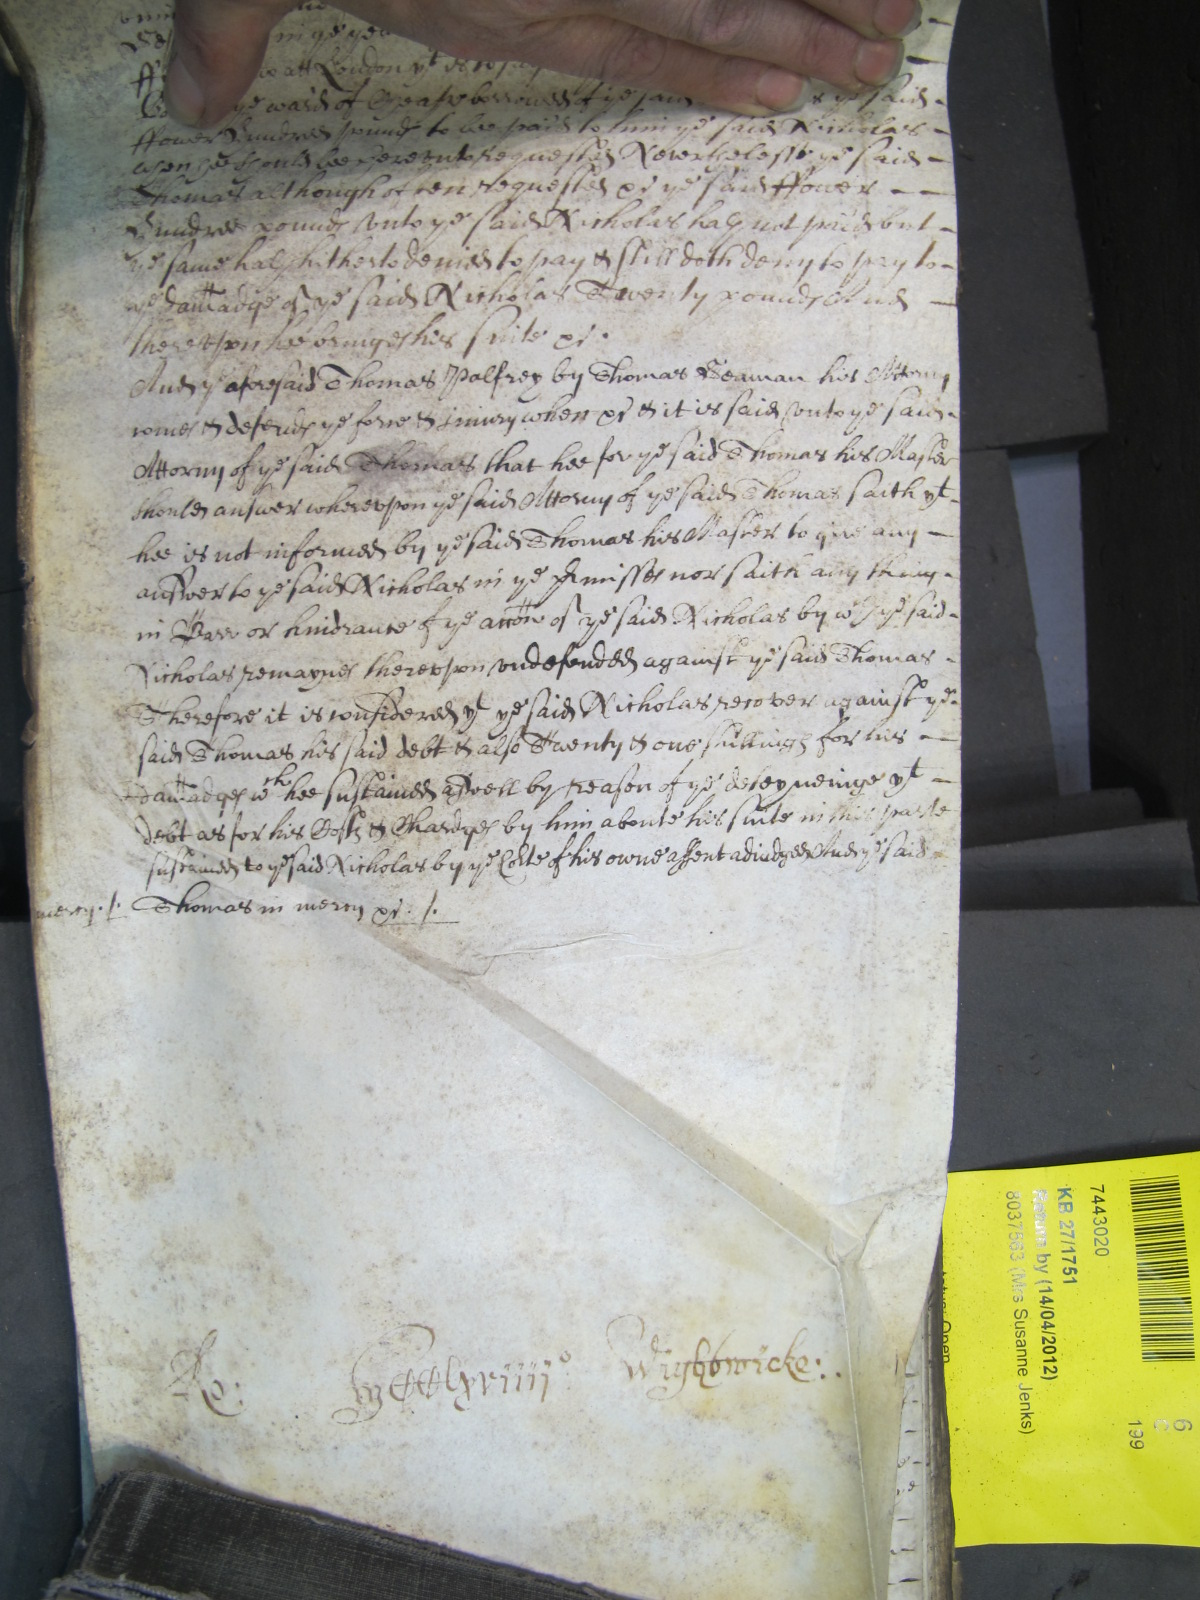 in ye yea
att London yt is to say
ye ward of Cheape borrowed of ye said ye said
ffower Hundred pounds to bee paid to him ye said Nicholas
when hee should bee thereunto requested Neverthelesse ye said
Thomas although often requested &c ye said ffower
Hundred pounds unto ye said Nicholas hath not paid but
ye same hath hitherto denied to pay & still doth deny to pay to
ye damadge of ye said Nicholas Twenty pounds And
thereupon hee bringes his suite &c.
And ye aforesaid Thomas Palfrey by Thomas Seaman his Attorny
comes & defends ye force & iniury when &c & it is said unto ye said
Attorny of ye said Thomas that hee for ye said Thomas his Master
should answer whereupon ye said Attorny of ye said Thomas saith yt
hee is not informed by ye said Thomas his Master to give any
answer to ye said Nicholas in ye p̱misses nor saith any thing
in Barr or hindrance of ye accōn of ye said Nicholas by wch ye said
Nicholas remaynes thereupon undefended against ye said Thomas
Therefore it is considered yt ye said Nicholas recover against ye
said Thomas his said debt & also Twenty & one shillings for his
damadges wch hee sustained aswell by reason of ye deteyneinge yt
debt as for his Costs & Chardges by him aboute his suite in this parte
sustained to ye said Nicholas by ye Co͡rte of his owne assent adiudged And ye said
mercy ./. Thomas in mercy &c ./.
Ro: MCCClxxiiijo Wightwicke:.
7443020
KB 27/1751
Return by (14/04/2012)
8037563 (Mrs Susanne Jenks)
6
C
199
Open